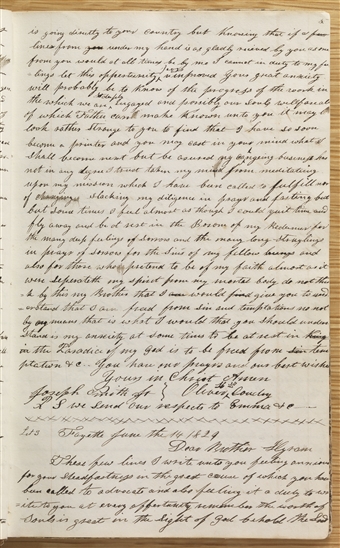 is going directly to your country but knowing that if a few
lines from you under my hand is as gladly received by you as one
from you would at all times be by me I cannot in duty to my fe
lings let this opportunity pass unimproved Your great anxiety
will probably be to know of the progress of the work in
the which we are engaged and possibly our souls welfare all
of which Father can make known unto you it may
look rather strange to you to find that I have so soon
become a printer and you may cast in your mind what I
shall become next but be assured my changing business has
not in any degree I trust taken my mind from meditating
upon my mission which I have been called to fulfill nor
of slacking my diligence in prayr and fasting but
but some times I feel almost as though I could quit time and
fly away and be at rest in the Bosom of my Redeemer for
the many deep feelings of sorrow and the many long struglings
in prayr of sorrow for the Sins of my fellow beings and
also for those who pretend to be of my faith almost as it
were seperateth my spirit from my mortal body do not think
by this my Brother that I would give you to und
erstand that I am freed from sin and temptations no not
by any means that is what I would that you should under
stand is my anxiety at some times to be at rest in
the Paradice of my God is to be freed from tem
ptation &c You have our prayrs and our best wishes
Yours in Christ Amen
Joseph Smith Jr Oliver Cowdery
P S we send our respects to Emma &c
Fayette June the 14 1829
Dear Brother Hyram
These few lines I write unto you feeling anxious
for your steadfastness in the great cause of which you have
been called to advocate and also feeling it a duty to wr
ite to you at every opportunity remember the worth of
Souls is great in the sight of God behold the Lord